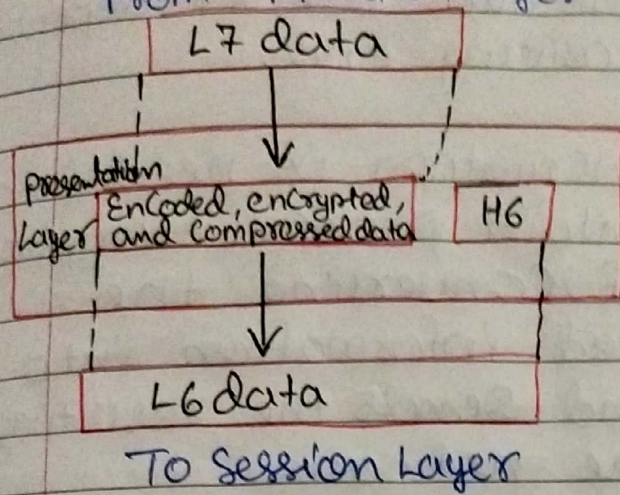 L7 data
Presentation
Layer
Encoded, encrypted,
and compressed data
H6
L6 data
To Session Layer